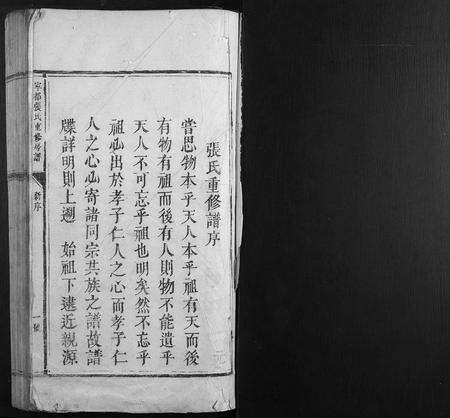 張氏重修譜序
嘗思物本乎天人本乎祖有天而後
有物有祖而後有人則物不能遺乎
天人不可忘乎祖也明矣然不忘乎
祖必出於孝子仁人之心而孝子仁
人之心必寄諸同宗共族之譜故譜
牒詳明則上遡 始祖下逮近親源
寧都張氏重修房譜
新序
一